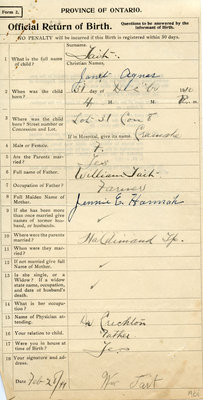 Form 2.
PROVINCE OF ONTARIO.
Official Return of Birth.
Questions to be answered by the Informant of Birth.
NO PENALTY will be incurred if this Birth is registered within 30 days.
Surname.
Tait
1 What is the full name of child?
Christian Names.
Janet Agnes
2 When was child born?
day of
18
H. M. M.
3 Where was child born? Street number or Concession and Lot.
Lot 31 Con 8
If in Hospital, give its name.
4 Male or Female.
F.
5 Are the Parents married?
Yes
6 Full name of Father.
William Tait
7 Occupation of Father?
Farmer
8 Full Maiden Name of Mother.
Jennie E. Hannah
9 If she has been more than once married give names of former husband, or husbands.
10 Where were the parents married?
Haldimand Tp.
11 When were they married?
12 If not married give full Name of Mother.
13 Is she single, or a Widow? If a widow state name, occupation, and date of husband's death.
14 What is her occupation?
15 Name of Physician attending.
Dr
16 Your relation to child.
Father
17 Were you in house at time of Birth?
Yes
18 Your signature and address.
Date Feb
Wm Tait